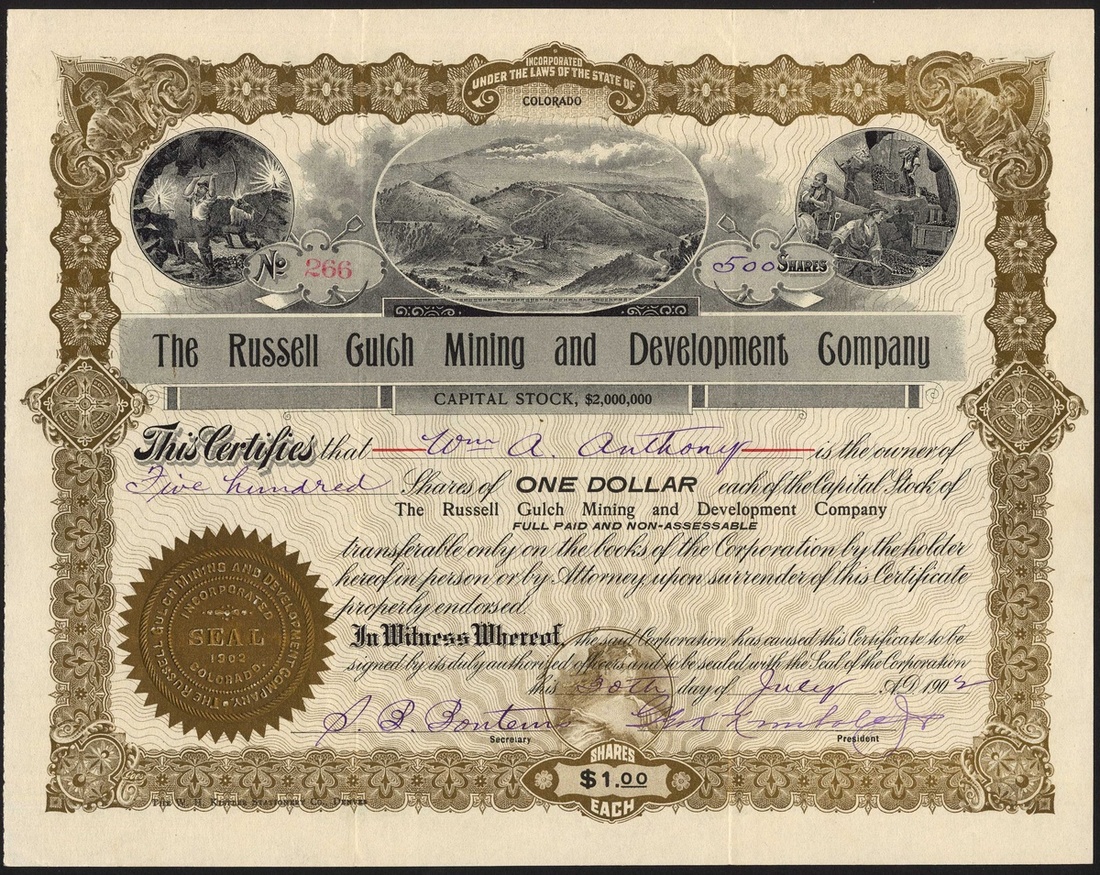 INCORPORATED
UNDER THE LAWS OF THE STATE OF
COLORADO
No 266
500 SHARES
The Russell Gulch Mining and Development Company
CAPITAL STOCK, $2,000,000
This Certifies that Wm A. Anthony is the owner of
Five hundred Shares of ONE DOLLAR each of the Capital Stock of
The Russell Gulch Mining and Development Company
FULL PAID AND NON-ASSESSABLE
transferable only on the books of the Corporation by the holder
hereof in person or by Attorney, upon surrender of this Certificate
properly endorsed.
In Witness Whereof, the said Corporation has caused this Certificate to be
signed by its duly authorized officers and to be sealed with the Seal of the Corporation
this 30th day of July A.D. 1902
THE RUSSELL GULCH MINING AND DEVELOPMENT COMPANY.
INCORPORATED
SEAL
1902
COLORADO.
S. B.
Secretary
President
SHARES
$1.00
EACH
THE W. H. KISTLER STATIONERY CO., DENVER